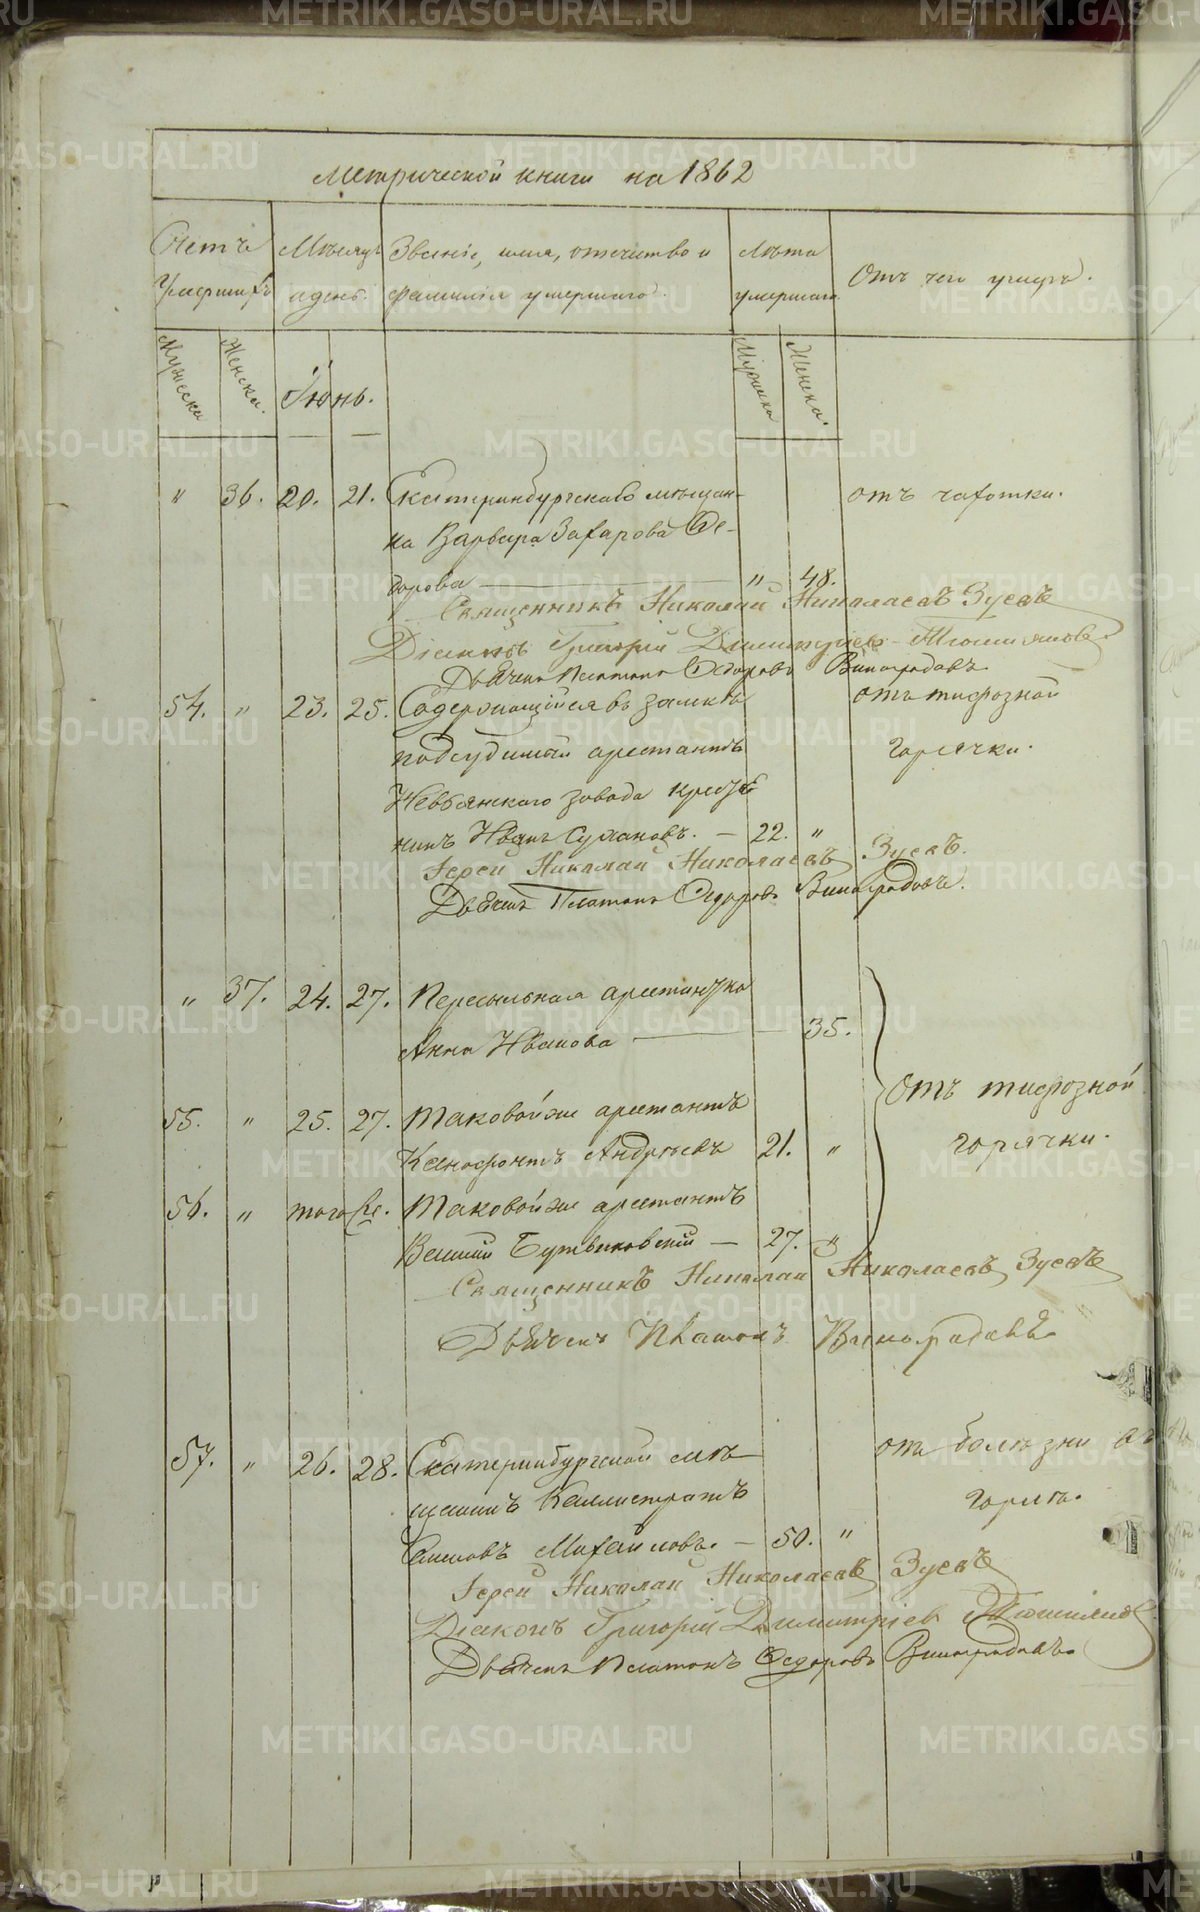 Метрической книги на 1862
Счетъ
Умершихъ
Мѣсяцъ
и день.
Званіе, имя, отечитво и
фамилія умершаго.
Лѣта
умершаго
Отъ чего умеръ.
Мужеска
Женска.
Іюнь.
Мужска
Женска.
" 36. 20. 21. Екатеринбургскаго мѣщан- отъ чахотки.
ка Варвара Захарова Ѳе-
дорова — " 48.
Священникъ Николай Николаевъ Зуевъ
Діаконъ Григорій Димитріевъ
Дьячекъ Платонъ Ѳедоровъ Виноградовъ
54. " 23. 25. Содержащійся въ замкѣ отъ тифозной
подсудимый арестантъ горячки.
Невьянскаго завода кресть
нинъ Иванъ — 22. "
Іерей Николай Николаевъ Зуевъ.
Дьячекъ Платонъ Ѳедоровъ Виноградовъ.
" 37. 24. 27. Пересыльная арестантка
Анна Иванова — 35.
Отъ тифозной
55. " 25. 27. Таковой же арестантъ
горячки.
Ксенофонтъ Андреевъ 21. "
56. " того же. Таковой же арестантъ
— 27. "
Священникъ Николай Николаевъ Зуевъ
Дьячекъ Платонъ Виноградовъ
57. " 26. 28. Екатеринбургской мѣ- отъ болѣзни въ
щанинъ Каллистратъ горлѣ.
Михайловъ. — 50. "
Іерей Николай Николаевъ Зуевъ
Діаконъ Григорій Димитріевъ
Дьячекъ Платонъ Ѳедоровъ Виноградовъ
METRIKI.GASO-URAL.RU